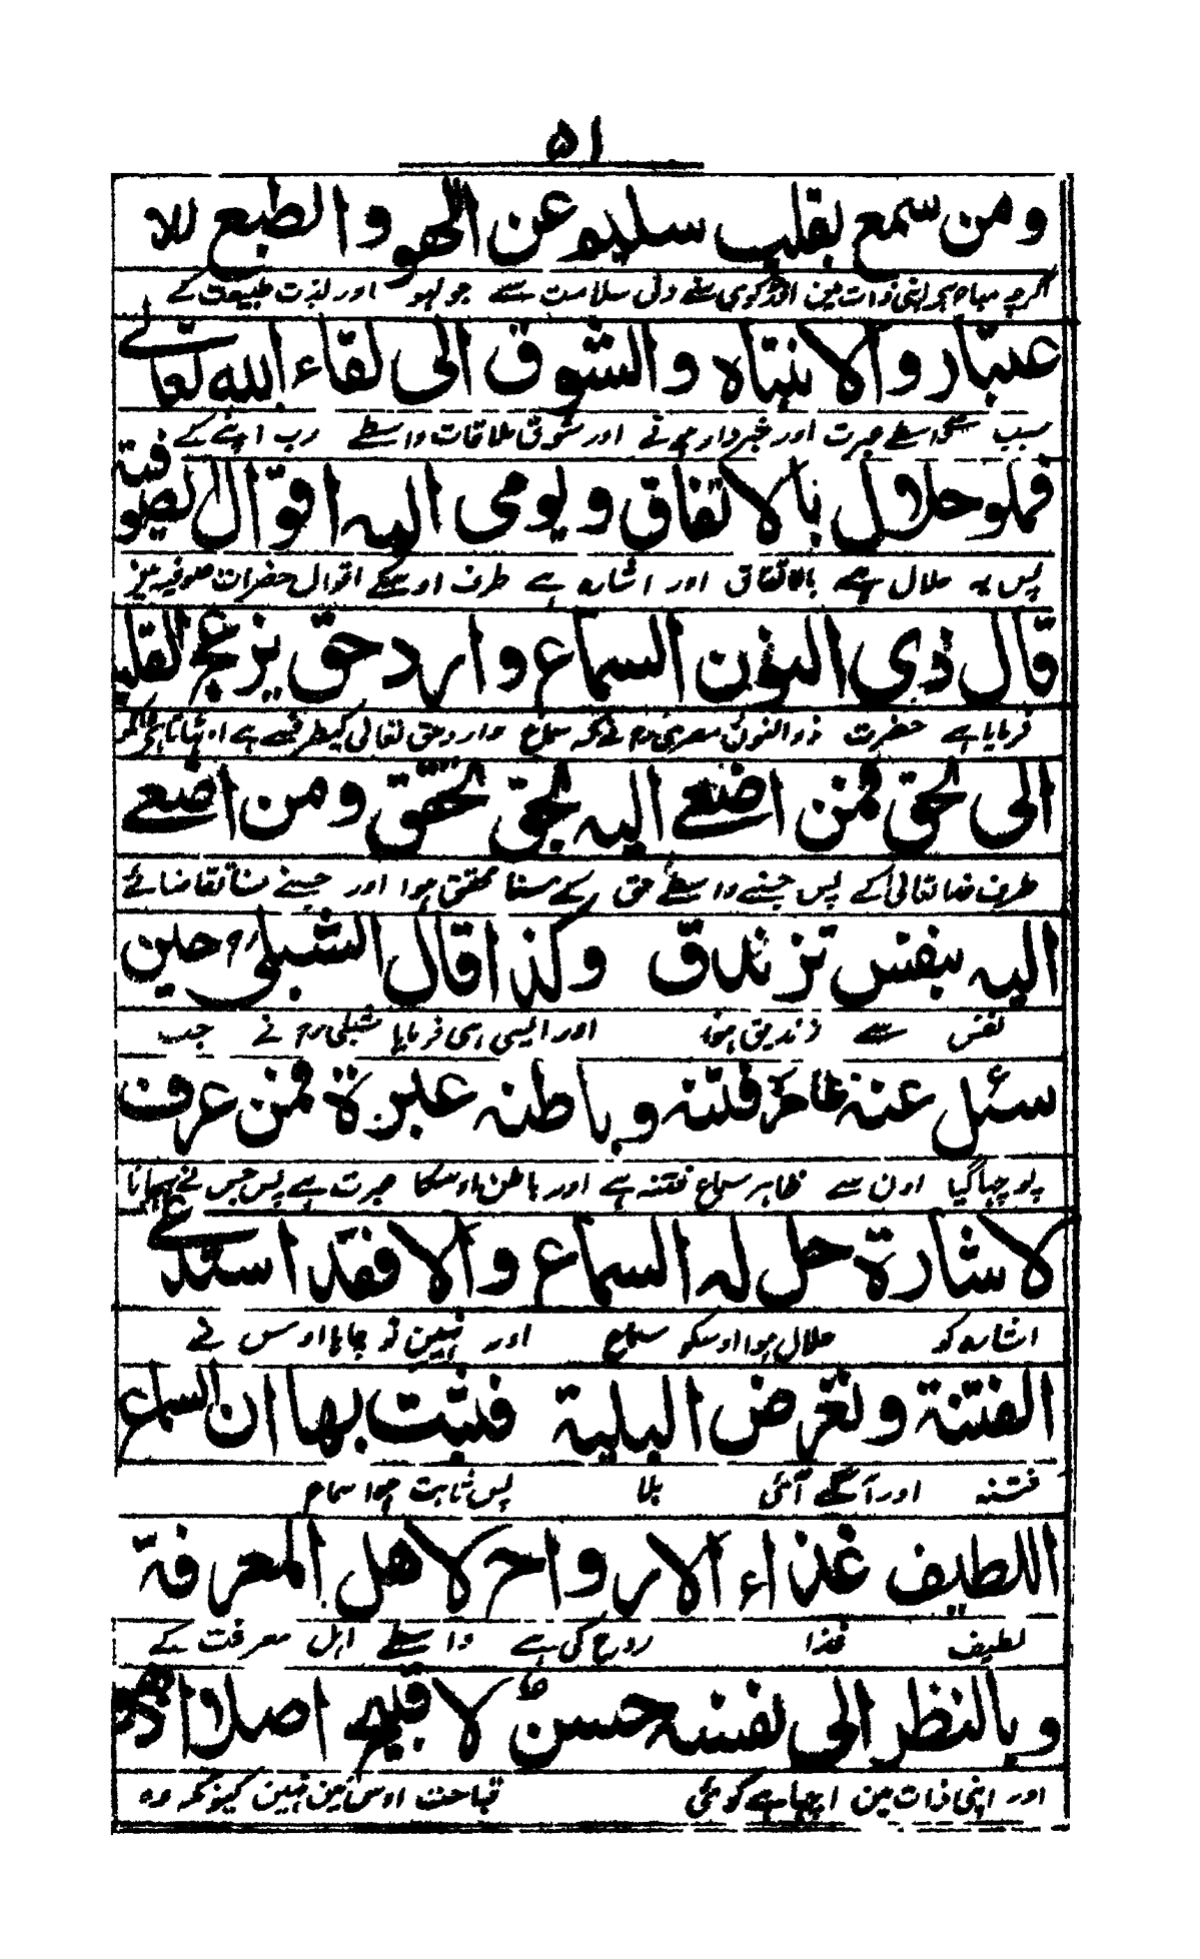 ۵۱
ومن سمع بقلب سليم عن الهو والطبع للا
اگرچہ مباح ہر اپنی ذات مین سنے دلی سلامت سے جو لہو اور لذت طبیعت کے
عتبار والانتباه والشوق الى لقاء الله تعالے
سبب واسطے عبرت اور خبردار ہونے اور شوق ملاقات واسطے رب اپنے کے
فهو حلال بالاتفاق ويومى اليه اقوال الصوفية
پس یہ حلال ہے بالاتفاق اور اشارہ ہے طرف اوسکے اقوال حضرات صوفیہ
قال ذى النون السماع وارد حق يزعج القلب
فرمایا ہے حضرت ذوالنون مصری رح نے کہ سماع وارد حق تعالی کیطرف سے ہے
الى الحق فمن اضغے اليه بحق تحقق ومن اضغے
طرف خدا تعالی کے پس جسنے واسطے حق کے سنا محقق ہوا اور جسنے سنا تقاضائے
اليه بنفس تزندق وكذا قال الشبلى رح حين
نفس سے زندیق ہوا اور ایسی ہی فرمایا شبلی رح نے جب
سئل عنه ظاهره فتنه وباطنه عبرة فمن عرف
پوچھا گیا اون سے ظاہر سماع فتنہ ہے اور باطن اوسکا عبرت ہے پس جس نے پہچانا
لاشارة حل له السماع والا فقد استدعے
اشارہ کو حلال ہوا اوسکو سماع اور نہین تو چاہا اوس نے
الفتنة وتعرض البلية فثبت بها ان السماع
فتنہ اور آگے آئی بلا پس ثابت ہوا سماع
اللطيف غذاء الارواح لاهل المعرفة
لطیف غذا روح کی ہے واسطے اہل معرفت کے
وبالنظر الى نفسه حسن لا قبيح اصلا اذهو
اور اپنی ذات مین اچھا ہے کوئی قباحت اوس مین نہین کیونکہ وہ